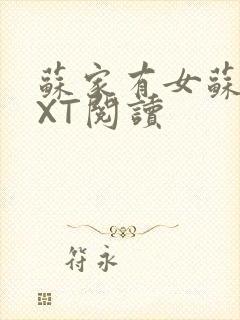 蘇家有女蘇
XT閱讀
符永